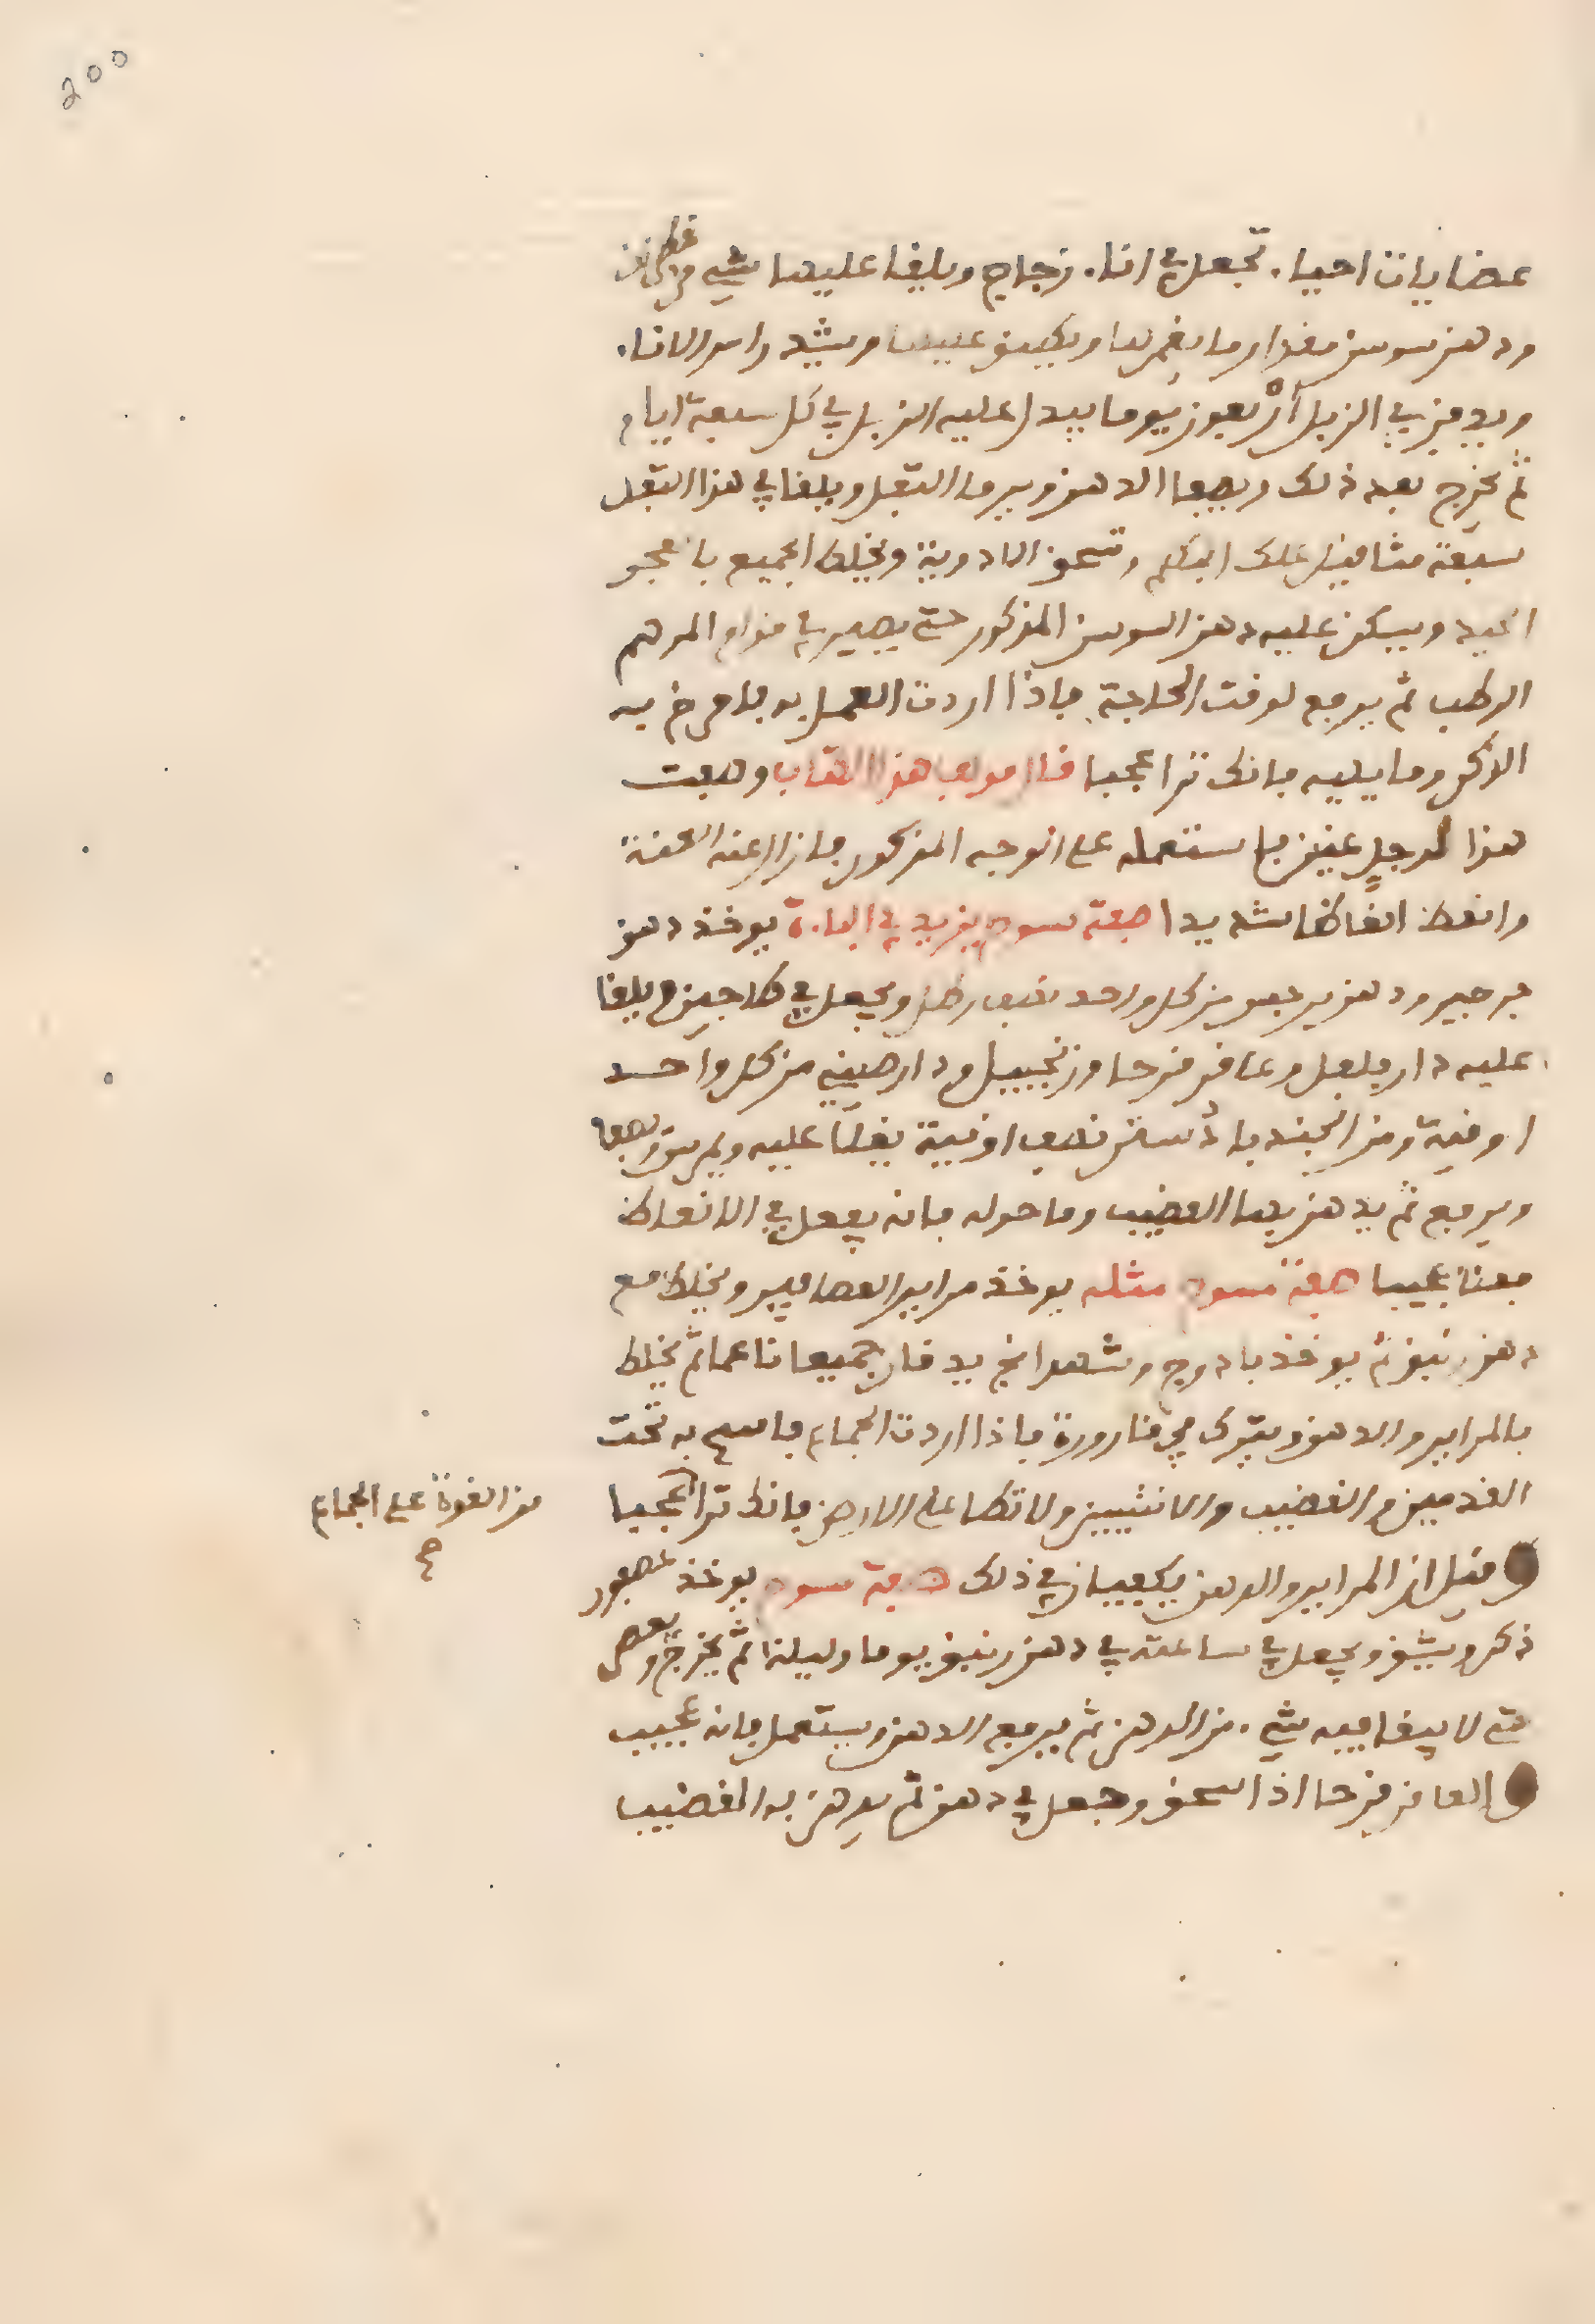 200
عضايات احياء تجعل في اناء زجاج ويلقا عليها شيء من قطران
ودهن سوسن مقدار ما يغمرها ويكيف عليها ويشد راس الاناء
ويدفن في الزبل أربعون يوما يبدل عليه الزبل في كل سبعة ايام
ثم يخرج بعد ذلك ويصفا الدهن ويرما الثفل ويلقا في هذا الثفل
سبعة مثاقيل علك البطم وتسحق الادوية ويخلط الجميع بالعجن
الجيد ويسكن عليه دهن السوسن المذكور حتى يصير في قوام المرهم
الرطب ثم يرفع لوقت الحاجة فاذا اردت العمل به فامرخ به
الذكر وما يليه فانك ترا عجبا قال مولف هذا الكتاب وصفت
هذا لرجل عنين فاستعمله على الوجه المذكور فازال عنه العنة
وانعظ انعاظا شديدا صفة مسوح يزيد في الباءة يوخذ دهن
جرجير ودهن نرجس من كل واحد نصف رطل ويجعل في طاجين ويلقا
عليه دار فلفل وعاقر قرحا وزنجبيل ودارصيني من كل واحد
اوقية ومن الجندبادستر نصف اوقية يغلا عليه ويمرس ويصفا
ويرفع ثم يدهن بها القضيب وما حوله فانه يفعل في الانعاظ
فعلا عجيبا صفة مسوح مثله يوخذ مراير العصافير ويخلط مع
دهن زنبق ثم يوخذ بادروج وشهدانج يدقان جميعا ناعما ثم يخلط
بالمراير والدهن ويترك في قارورة فاذا اردت الجماع فامسح به تحت
القدمين والقضيب والانثيين ولا تطا على الارض فانك ترا عجبا
من القوة على الجماع
صح
وقيل ان المراير والدهن يكفيان في ذلك صفة مسوح يوخذ عصفور
ذكر ويشق ويجعل في ساعته في دهن زنبق يوما وليلة ثم يخرج ويعصر
حتى لا يبقا فيه شيء من الدهن ثم يرفع الدهن ويستعمل فانه عجيب
والعاقر قرحا اذا سحق وجعل في دهن ثم يدهن به القضيب